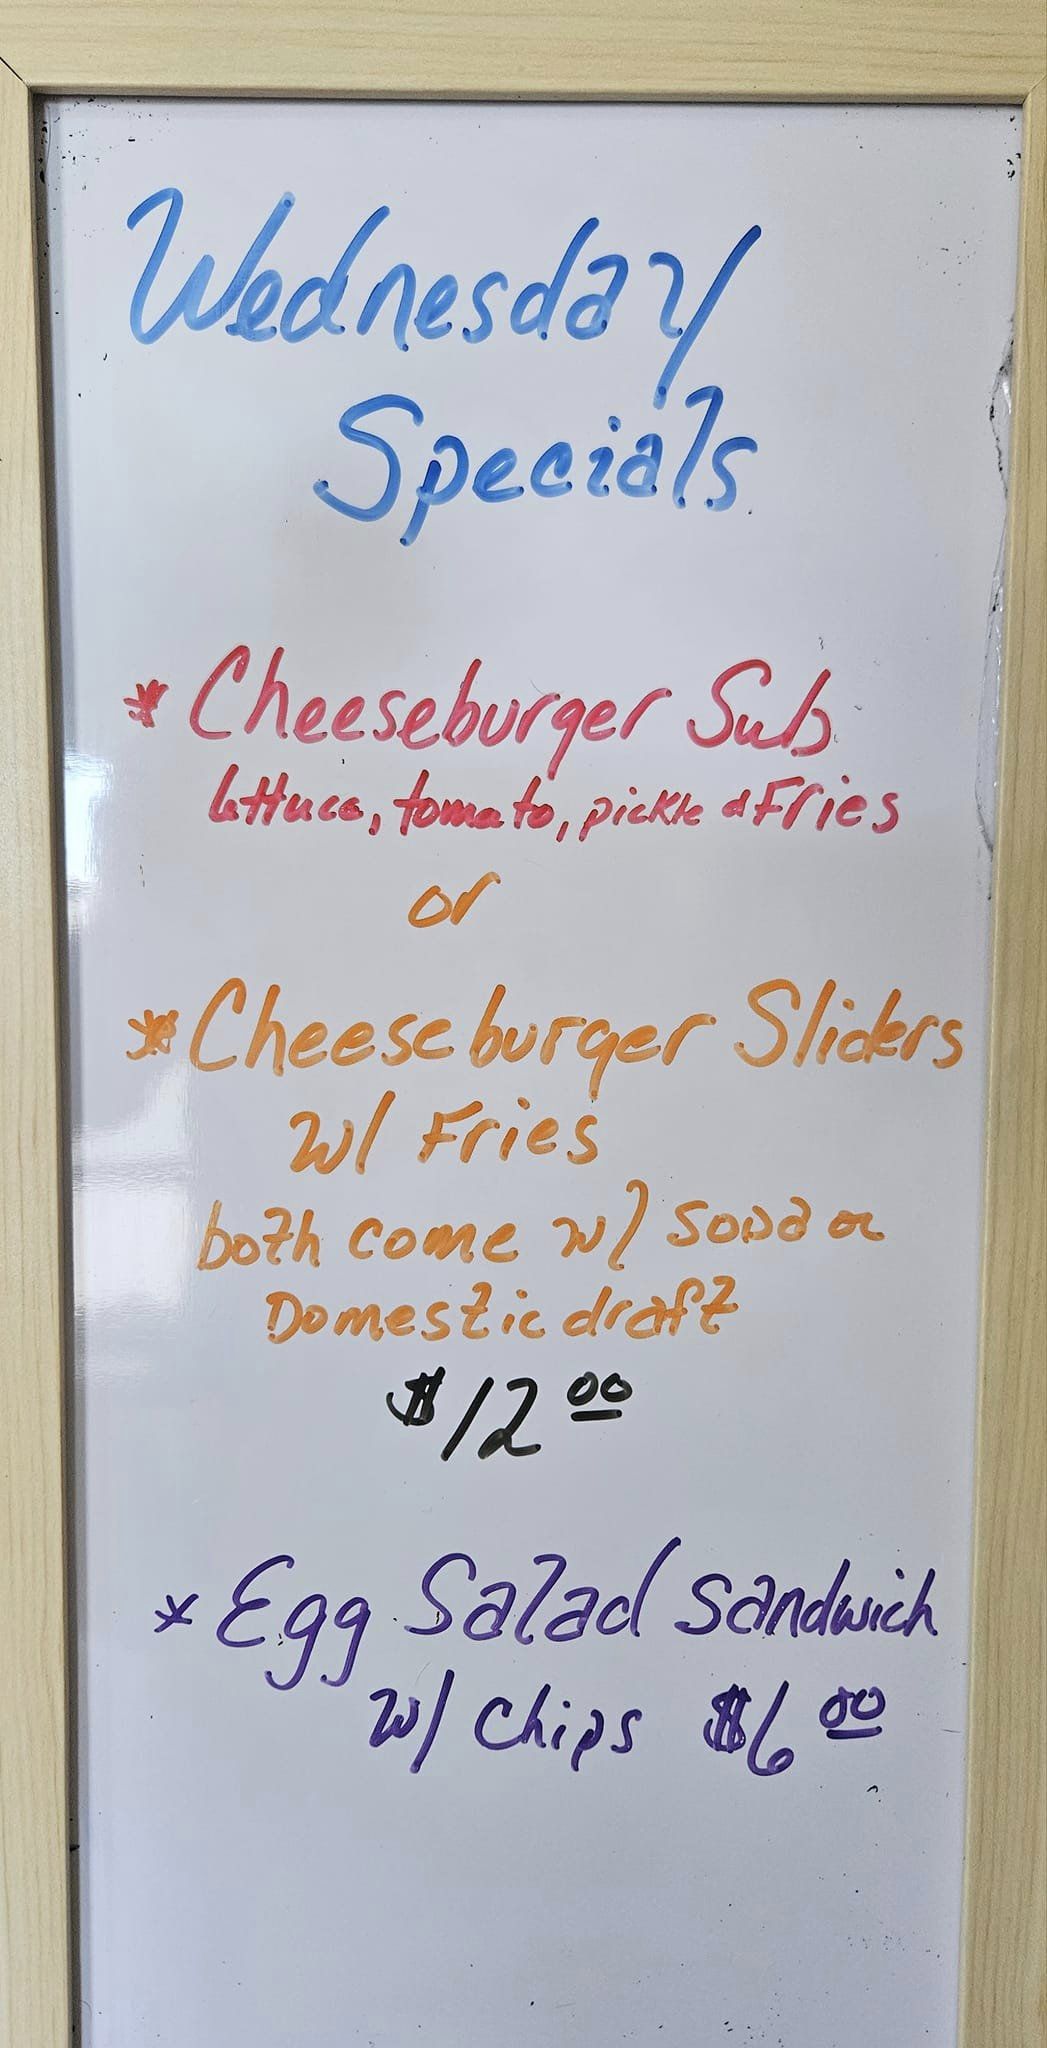 Wednesday
Specials
* Cheeseburger Sub
lettuce, tomato, pickle & Fries
or
* Cheeseburger Sliders
w/ Fries
both come w/ soda or
Domestic draft
$12 00
* Egg Salad Sandwich
w/ chips $6 00